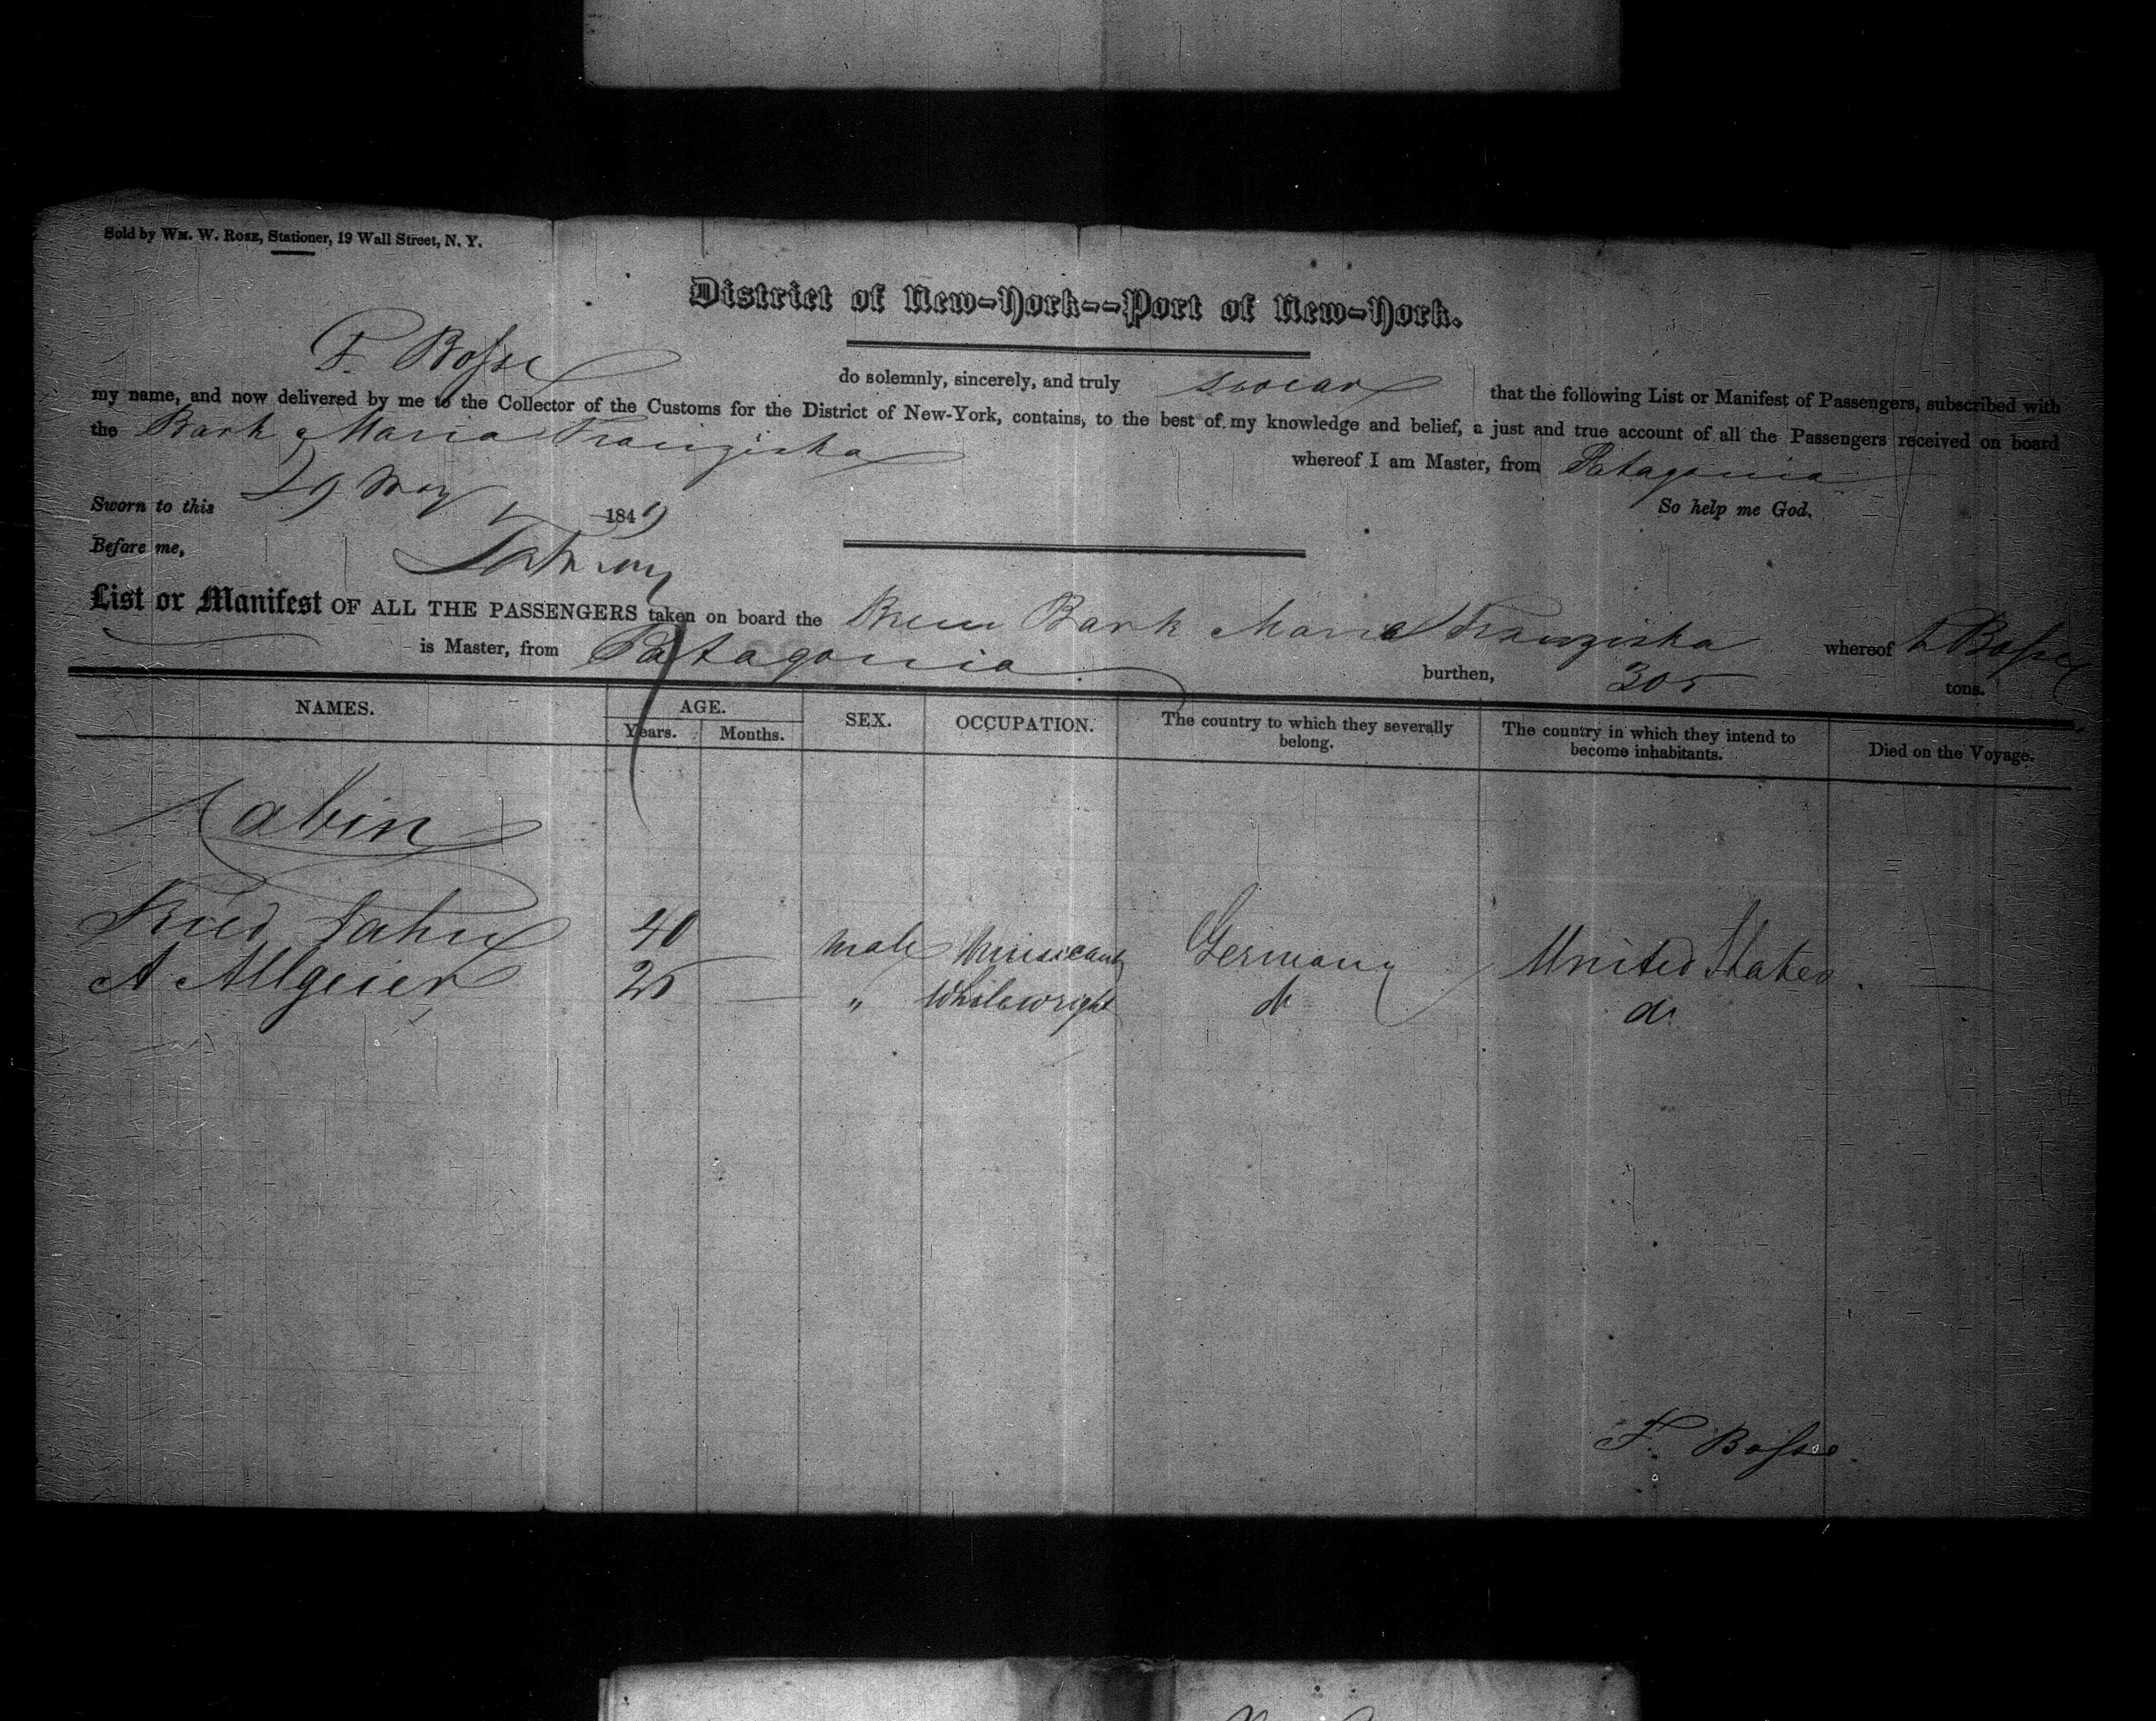 Sold by WM. W. ROSE, Stationer, 19 Wall Street, N. Y.
District of New-York--Port of New-York.
F. Bosse do solemnly, sincerely, and truly swear that the following List or Manifest of Passengers, subscribed with
my name, and now delivered by me to the Collector of the Customs for the District of New-York, contains, to the best of my knowledge and belief, a just and true account of all the Passengers received on board
the Bark Maria Franziska whereof I am Master, from Patagonia
Sworn to this 29 May 1849 So help me God.
Before me,
List or Manifest OF ALL THE PASSENGERS taken on board the Brem Bark Maria Franziska whereof F Bosse
is Master, from Patagonia burthen, 305 tons.
NAMES. AGE. SEX. OCCUPATION. The country to which they severally belong. The country in which they intend to become inhabitants. Died on the Voyage.
Years. Months.
Cabin
Fried Jahn 40 male Musicant Germany United States
A. Allgeier 25 " Whelewright do do
F. Bosse.